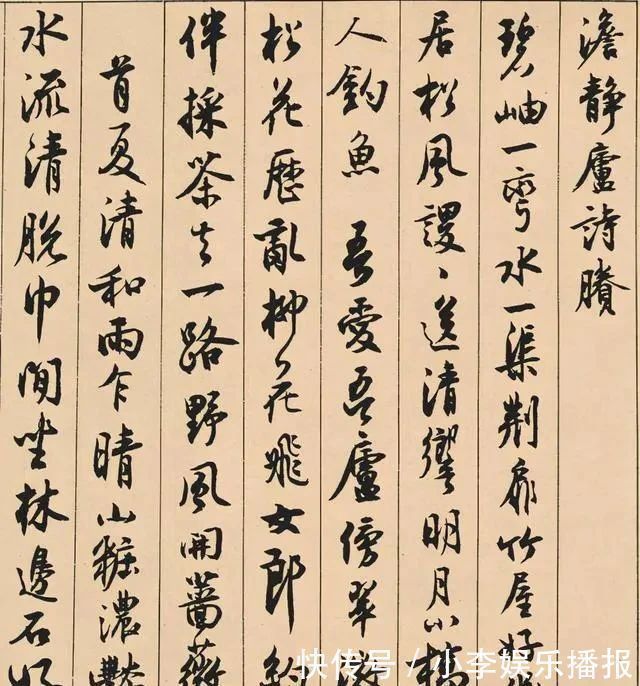 澹静廬詩賸
碧岫一彎水一渠荆扉竹屋好
居松風謖〻送清響明月小橋
人釣魚 吾愛吾廬傍翠
松花歷亂柳花飛女郎約
伴採茶去一路野風開薔薇
首夏清和雨乍晴山粧濃艷
水流清脱巾閒坐林邊石好
快传号 / 小李娱乐播报